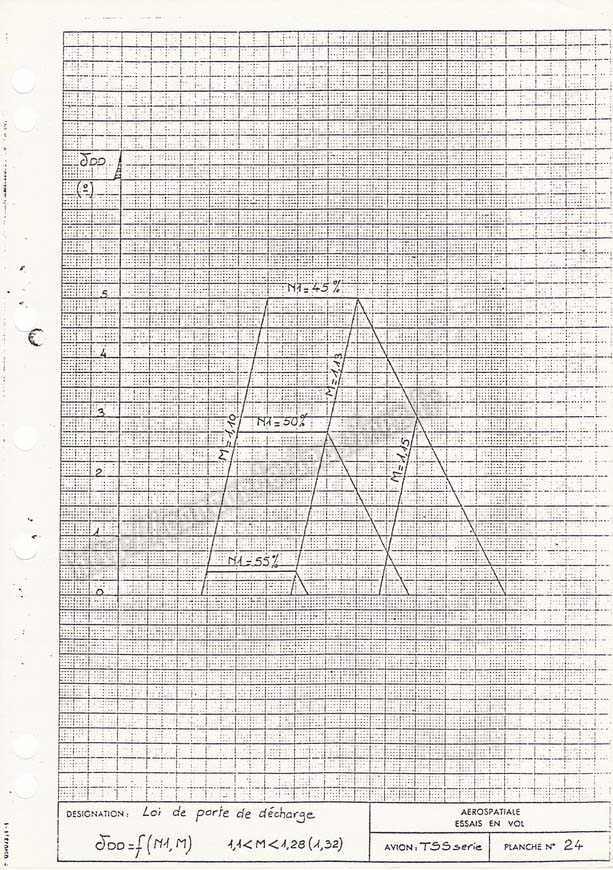 δDD
(°)
5
N1=45%
4
M=1,13
3
M=1,10
N1=50%
M=1,15
2
1
N1=55%
0
DESIGNATION: Loi de porte de décharge
δDD=f(N1,M) 1,1<M<1,28(1,32)
AEROSPATIALE
ESSAIS EN VOL
AVION: TSS serie
PLANCHE N° 24